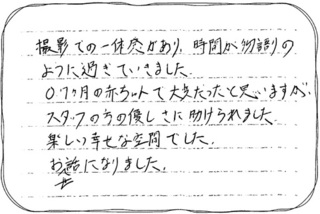 撮影での一体感があり、時間が物語の
ように過ぎていきました。
07ヶ月の赤ちゃんで大変だったと思いますが、
スタッフの方の優しさに助けられました。
楽しい幸せな空間でした。
お世話になりました。